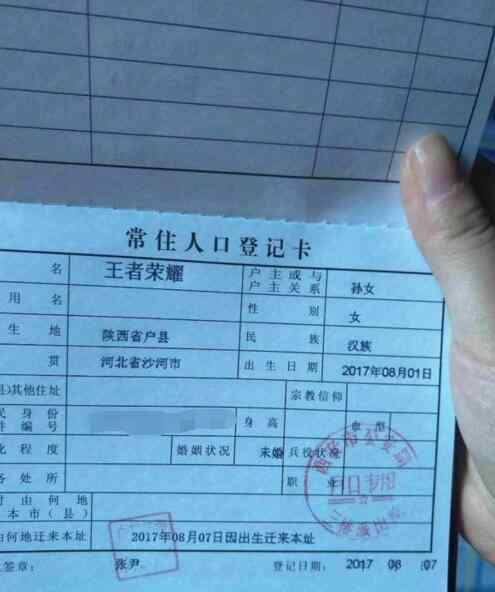 常住人口登记卡
名 王者荣耀 户主或与户主关系 孙女
用名 性别 女
生地 陕西省户县 民族 汉族
贯 河北省沙河市 出生日期 2017年08月01日
县)其他住址 宗教信仰
民身份件编号 身高 血型
化程度 婚姻状况 未婚 兵役状况
务处所 职业
时由何地本市(县)
由何地迁来本址 2017年08月07日因出生迁来本址
签章: 张尹 登记日期: 2017 08 07
户口专用